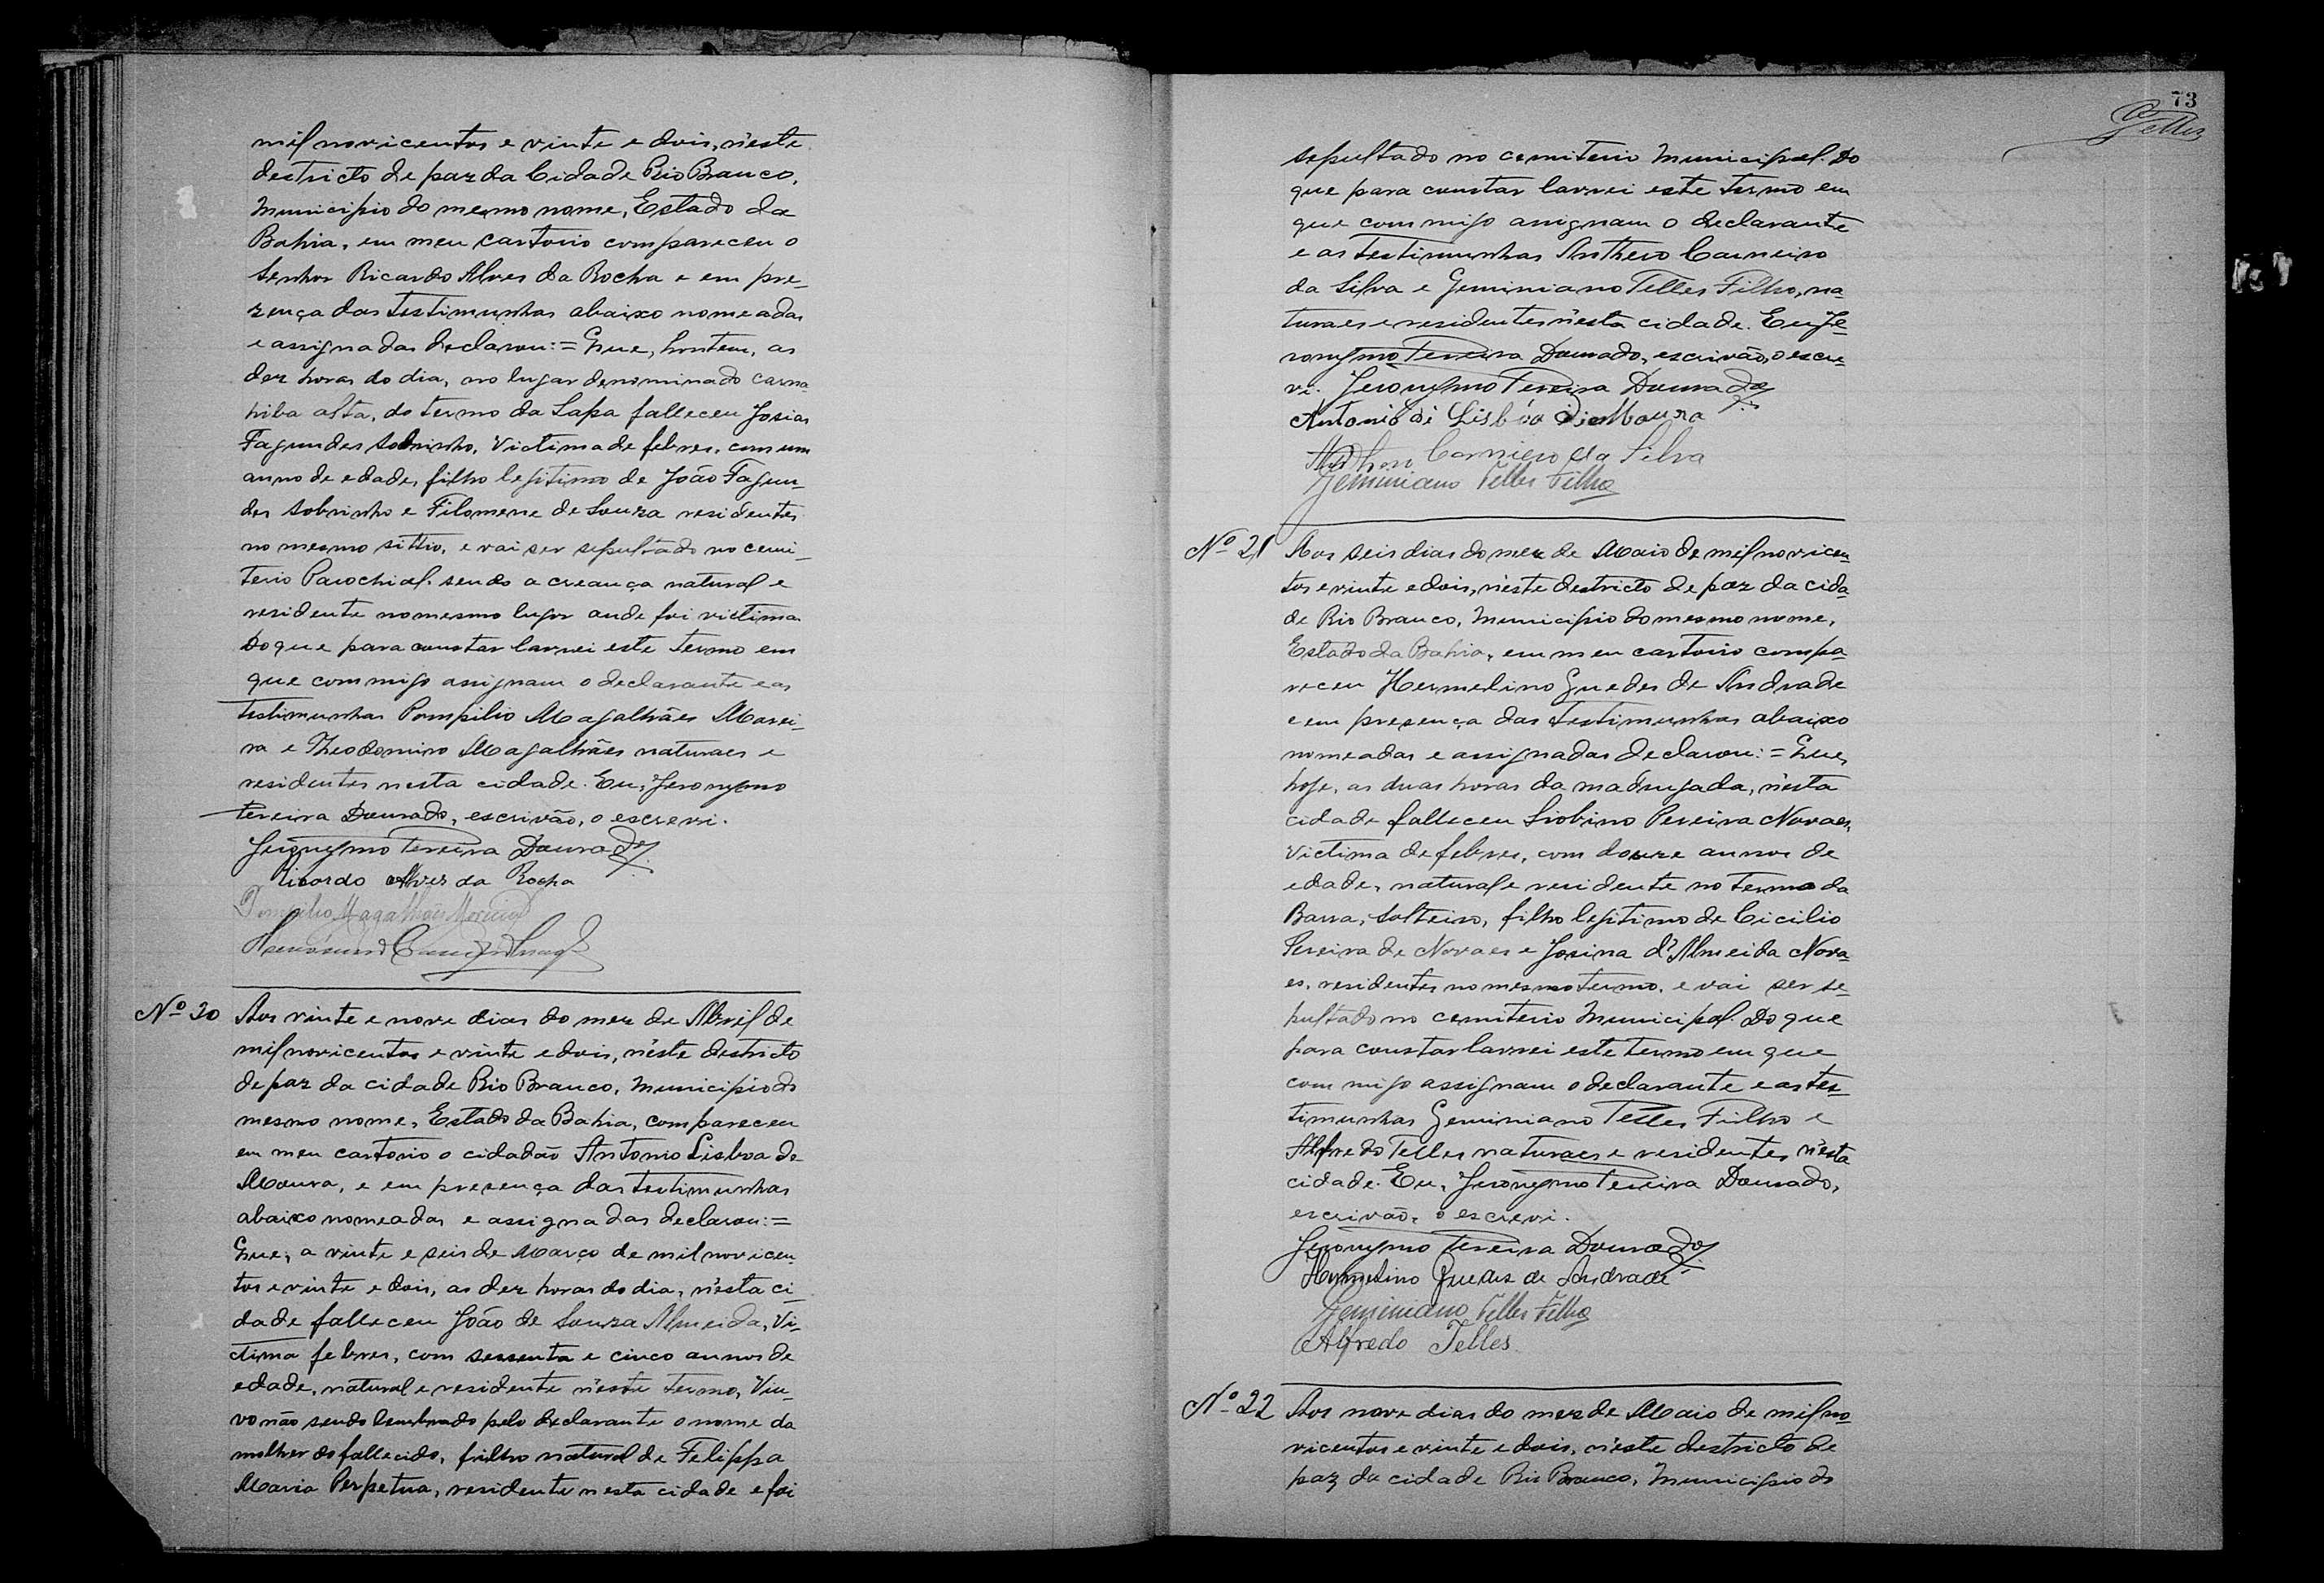 mil novicentos e vinte e dois, n'este
destricto de paz da Cidade Rio Branco,
Municipio do mesmo nome, Estado da
Bahia, em meu cartorio compareceu o
Senhor Ricardo Alves da Rocha e em pre-
zença das testimunhas abaixo nomeadas
e assignadas declarou:= Que, hontem, as
dez horas do dia, no lugar denominado carna
hiba alta, do termo da Lapa falleceu Josias
Fagundes Sobrinho, Victima de febres, com um
anno de edade, filho legitimo de João Fagun-
des Sobrinho e Filomene de Souza residentes
no mesmo sittio, e vai ser sepultado no cemi-
terio Parochial. sendo a creança natural e
residente no mesmo lugar onde foi victima.
Do que para constar lavrei este termo em
que commigo assignam o declarante e as
testimunhas Pompilio Magalhães Morei-
ra e Theodomiro Magalhães naturaes e
residentes nesta cidade. Eu, Jeronymo
Pereira Dourado, escrivão, o escrevi.
Jeronymo Pereira Dourado
Ricardo Alves da Rocha
Pompilio Magalhães Moreira
Nº 20 Aos vinte e nove dias do mez de Abril de
mil novicentos e vinte e dois, n'este destricto
de paz da cidade Rio Branco, Municipio do
mesmo nome, Estado da Bahia, compareceu
em meu cartorio o cidadão Antonio Lisboa de
Moura, e em presença das testimunhas
abaixo nomeadas e assignadas declarou:=
Que, a vinte e seis de Março de mil novicen-
tos e vinte e dois, as dez horas do dia, n'esta ci-
dade falleceu João de Souza Almeida, Vi-
ctima febres, com sessenta e cinco annos de
edade, natural e residente n'este termo, Viu-
vo não sendo lembrado pelo declarante o nome da
molher do fallecido, filho natural de Felippa
Maria Perpetua, residente nesta cidade e foi
73
Telles
sepultado no cemiterio Municipal. Do
que para constar lavrei este termo em
que commigo assignam o declarante
e as testimunhas Anthero Carneiro
da Silva e Geminiano Telles Filho, na-
turaes e residentes n'esta cidade. Eu, Je-
ronymo Pereira Dourado, escrivão, o escre-
vi. Jeronymo Pereira Dourado
Antonio di Lisbôa di Moura
Anthero Carneiro da Silva
Geminiano Telles Filho
Nº 21 Aos seis dias do mez de Maio de mil novicen-
tos e vinte e dois, n'este destricto de paz da cida-
de Rio Branco, Municipio do mesmo nome,
Estado da Bahia, em meu cartorio compa-
receu Hermelino Guedes de Andrade
e em presença das testimunhas abaixo
nomeadas e assignadas declarou:= Que,
hoje, as duas horas da madrugada, n'esta
cidade falleceu Liobino Pereira Novaes,
Victima de febres, com douze annos de
edade, natural e residente no termo da
Barra, Solteiro, filho legitimo de Cicilio
Pereira de Novaes e Josina d'Almeida Nova-
es, residentes no mesmo termo, e vai ser se-
pultado no cemiterio Municipal. Do que
para constar lavrei este termo em que
commigo assignam o declarante e as tes-
timunhas Geminiano Telles Filho e
Alfredo Telles naturaes e residentes n'esta
cidade. Eu, Jeronymo Pereira Dourado,
escrivão, o escrevi.
Jeronymo Pereira Dourado
Hermelino Guedes de Andrade
Geminiano Telles Filho
Alfredo Telles.
Nº 22 Aos nove dias do mez de Maio de mil no-
vicentos e vinte e dois, n'este destricto de
paz da cidade Rio Branco, Municipio do